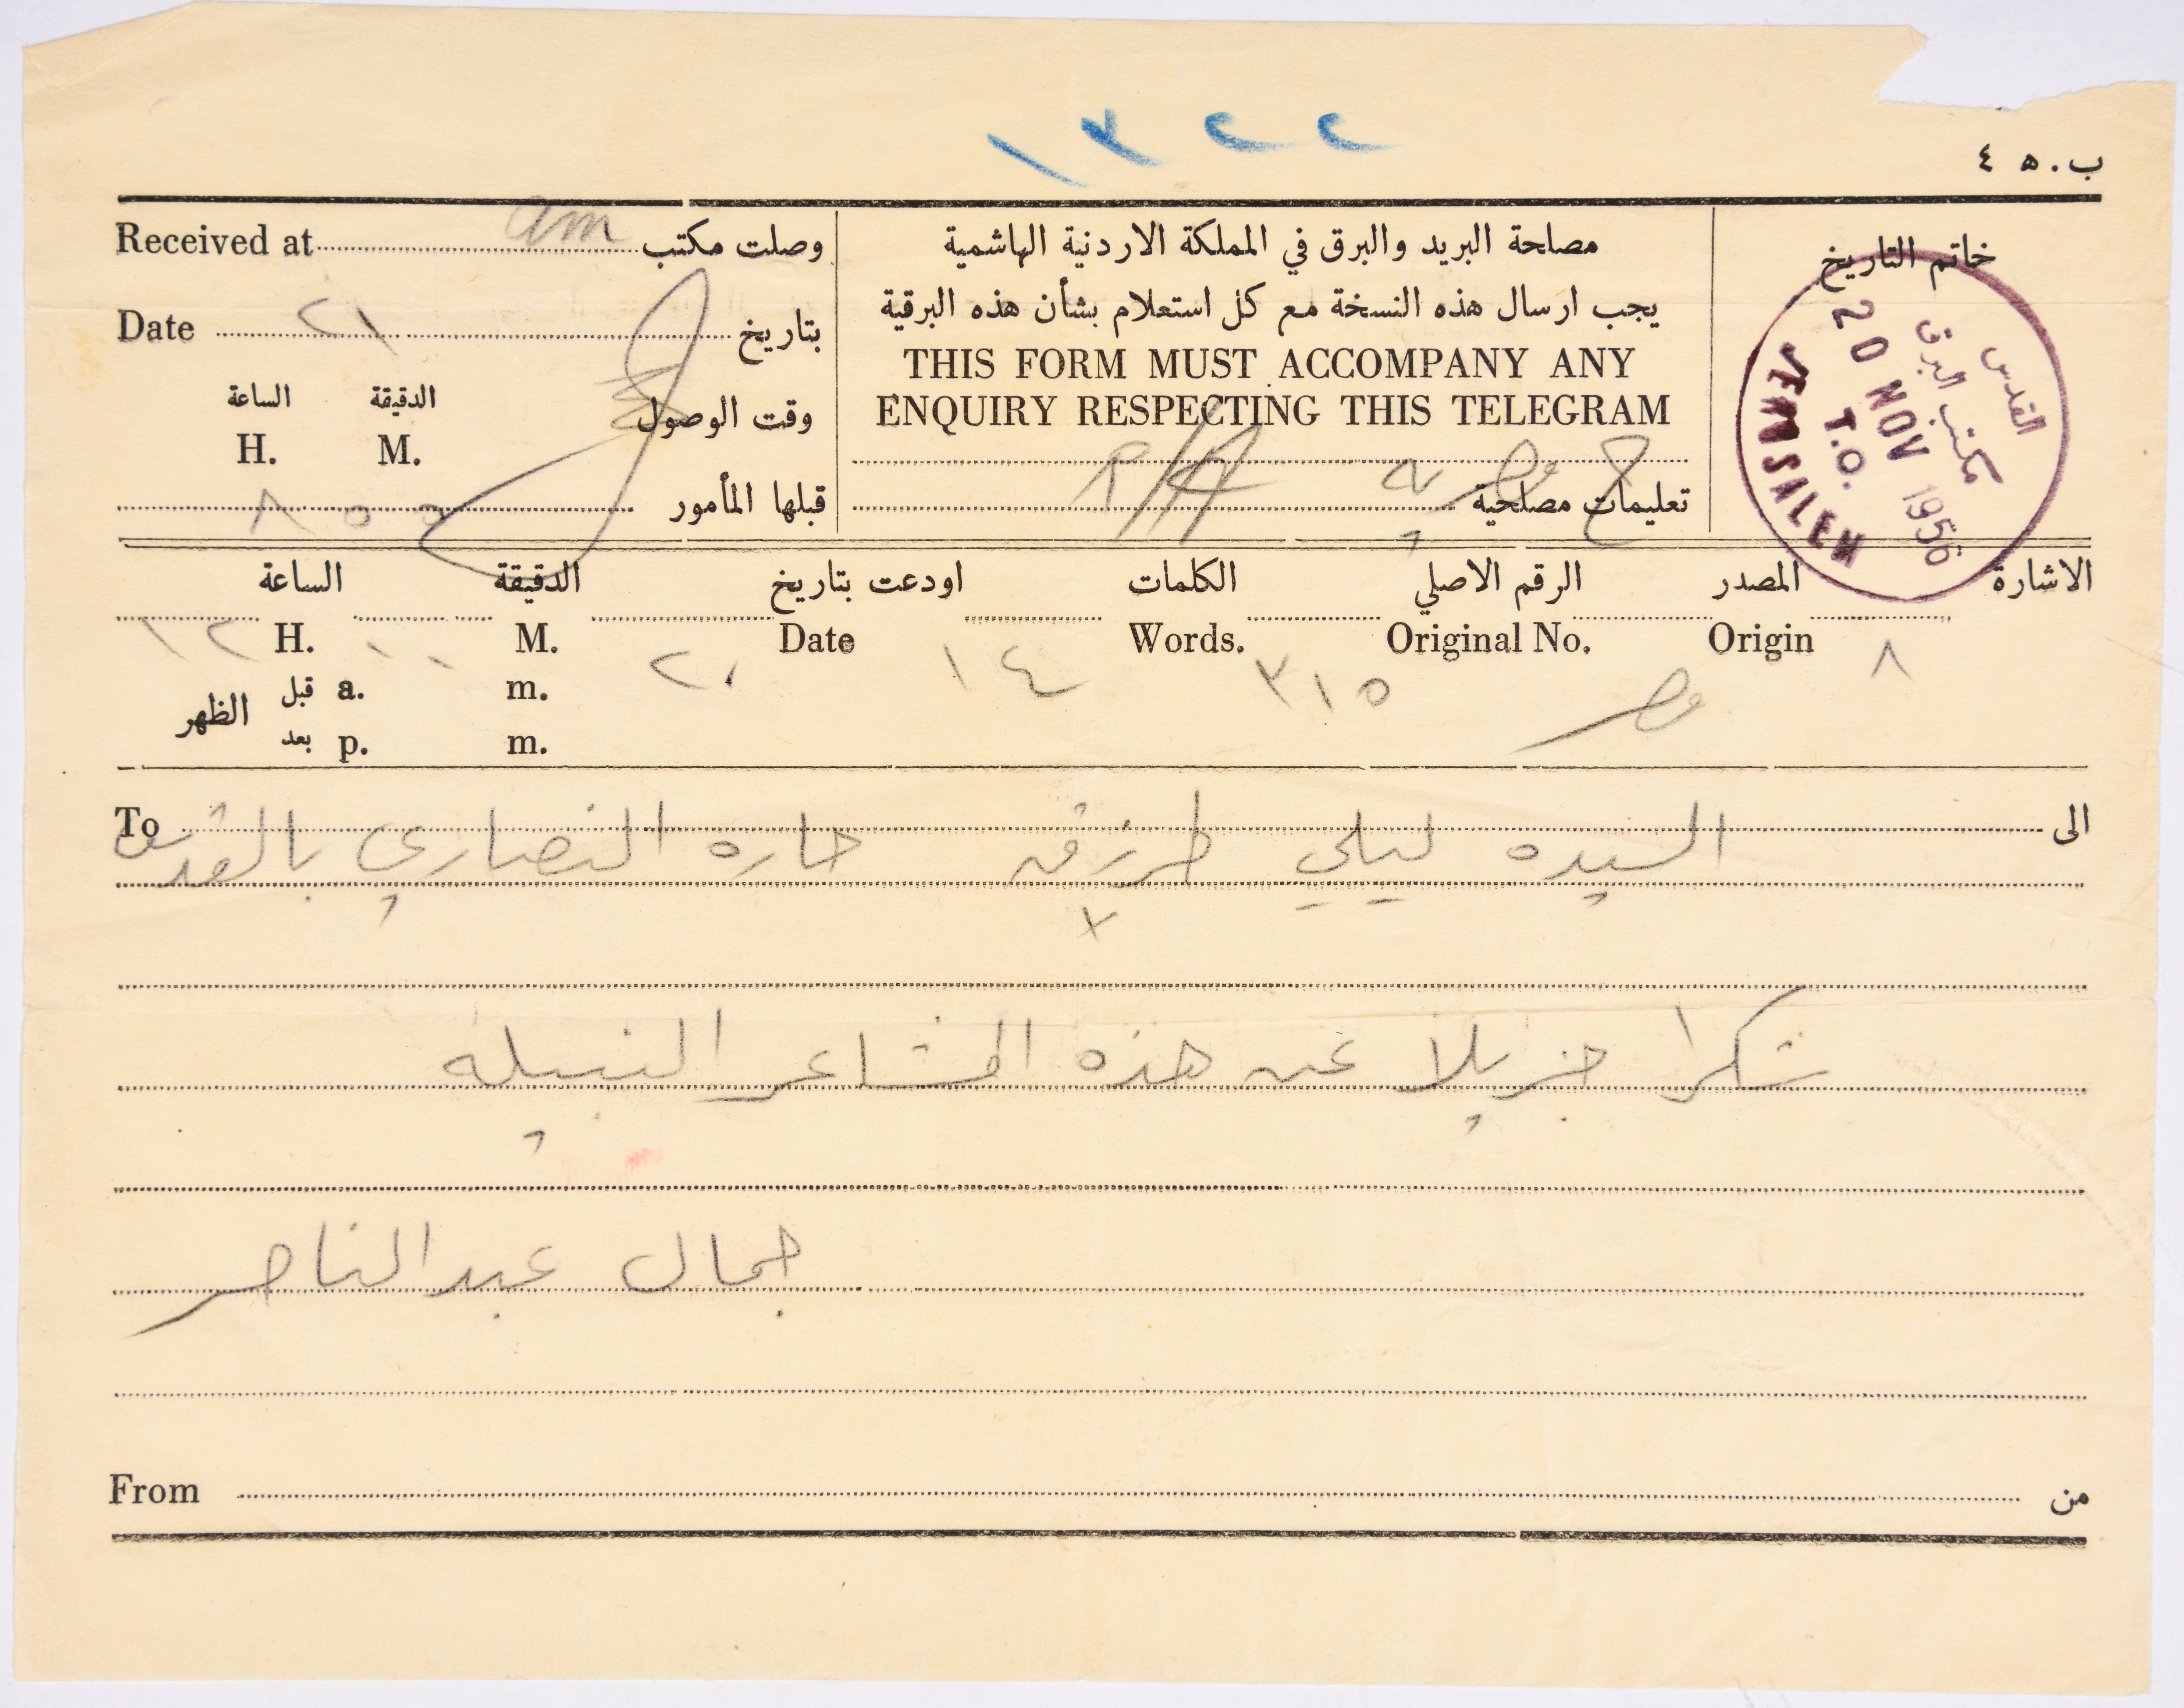 ١٣٢٢
ب. ٥ ٤
Received at am وصلت مكتب
مصلحة البريد والبرق في المملكة الاردنية الهاشمية
خاتم التاريخ
Date ٢١ بتاريخ
يجب ارسال هذه النسخة مع كل استعلام بشأن هذه البرقية
THIS FORM MUST ACCOMPANY ANY
ENQUIRY RESPECTING THIS TELEGRAM
الساعة الدقيقة وقت الوصول
H. M.
قبلها المأمور
٨ ٥٥
تعليمات مصلحية
القدس
مكتب البرق
20 NOV 1956
T.O.
JERUSALEM
الاشارة المصدر الرقم الاصلي الكلمات اودعت بتاريخ الدقيقة الساعة
Origin Original No. Words. Date M. H.
٨ مصر ٣١٥ ١٤ ٢٠ ١٠ ١٢
قبل a. m.
الظهر
بعد p. m.
To الى
السيده ليلي طرزي حاره النصاري بالقدس
شكرا جزيلا عن هذه المشاعر النبيله
جمال عبدالناصر
From من